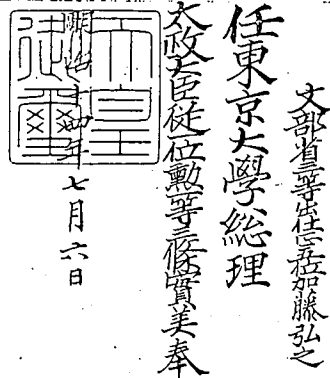 文部省三等出仕正五位加藤弘之
任東京大學総理
太政大臣従一位勲一等三條實美奉
明治十四年七月六日
天皇御璽